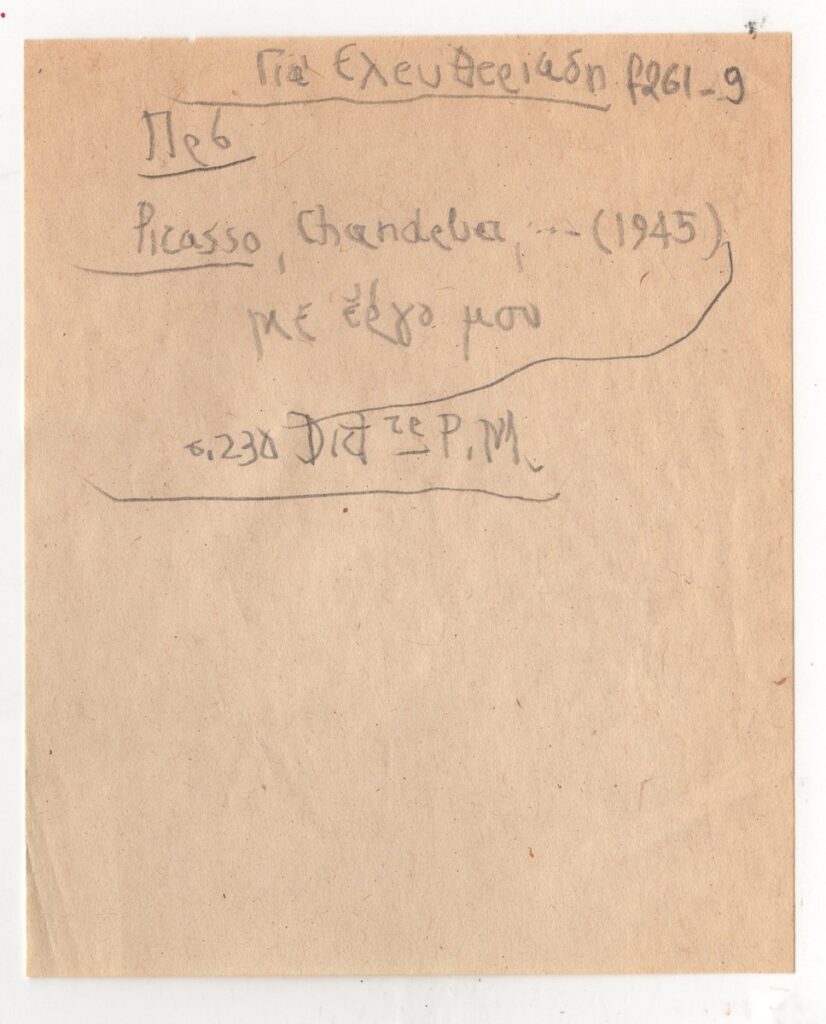 Για Ελευθεριαδη f261-9
Πρβ
Picasso, Chandelier, ... (1945)
με έργο μου
σ.230 Dict re P.M.